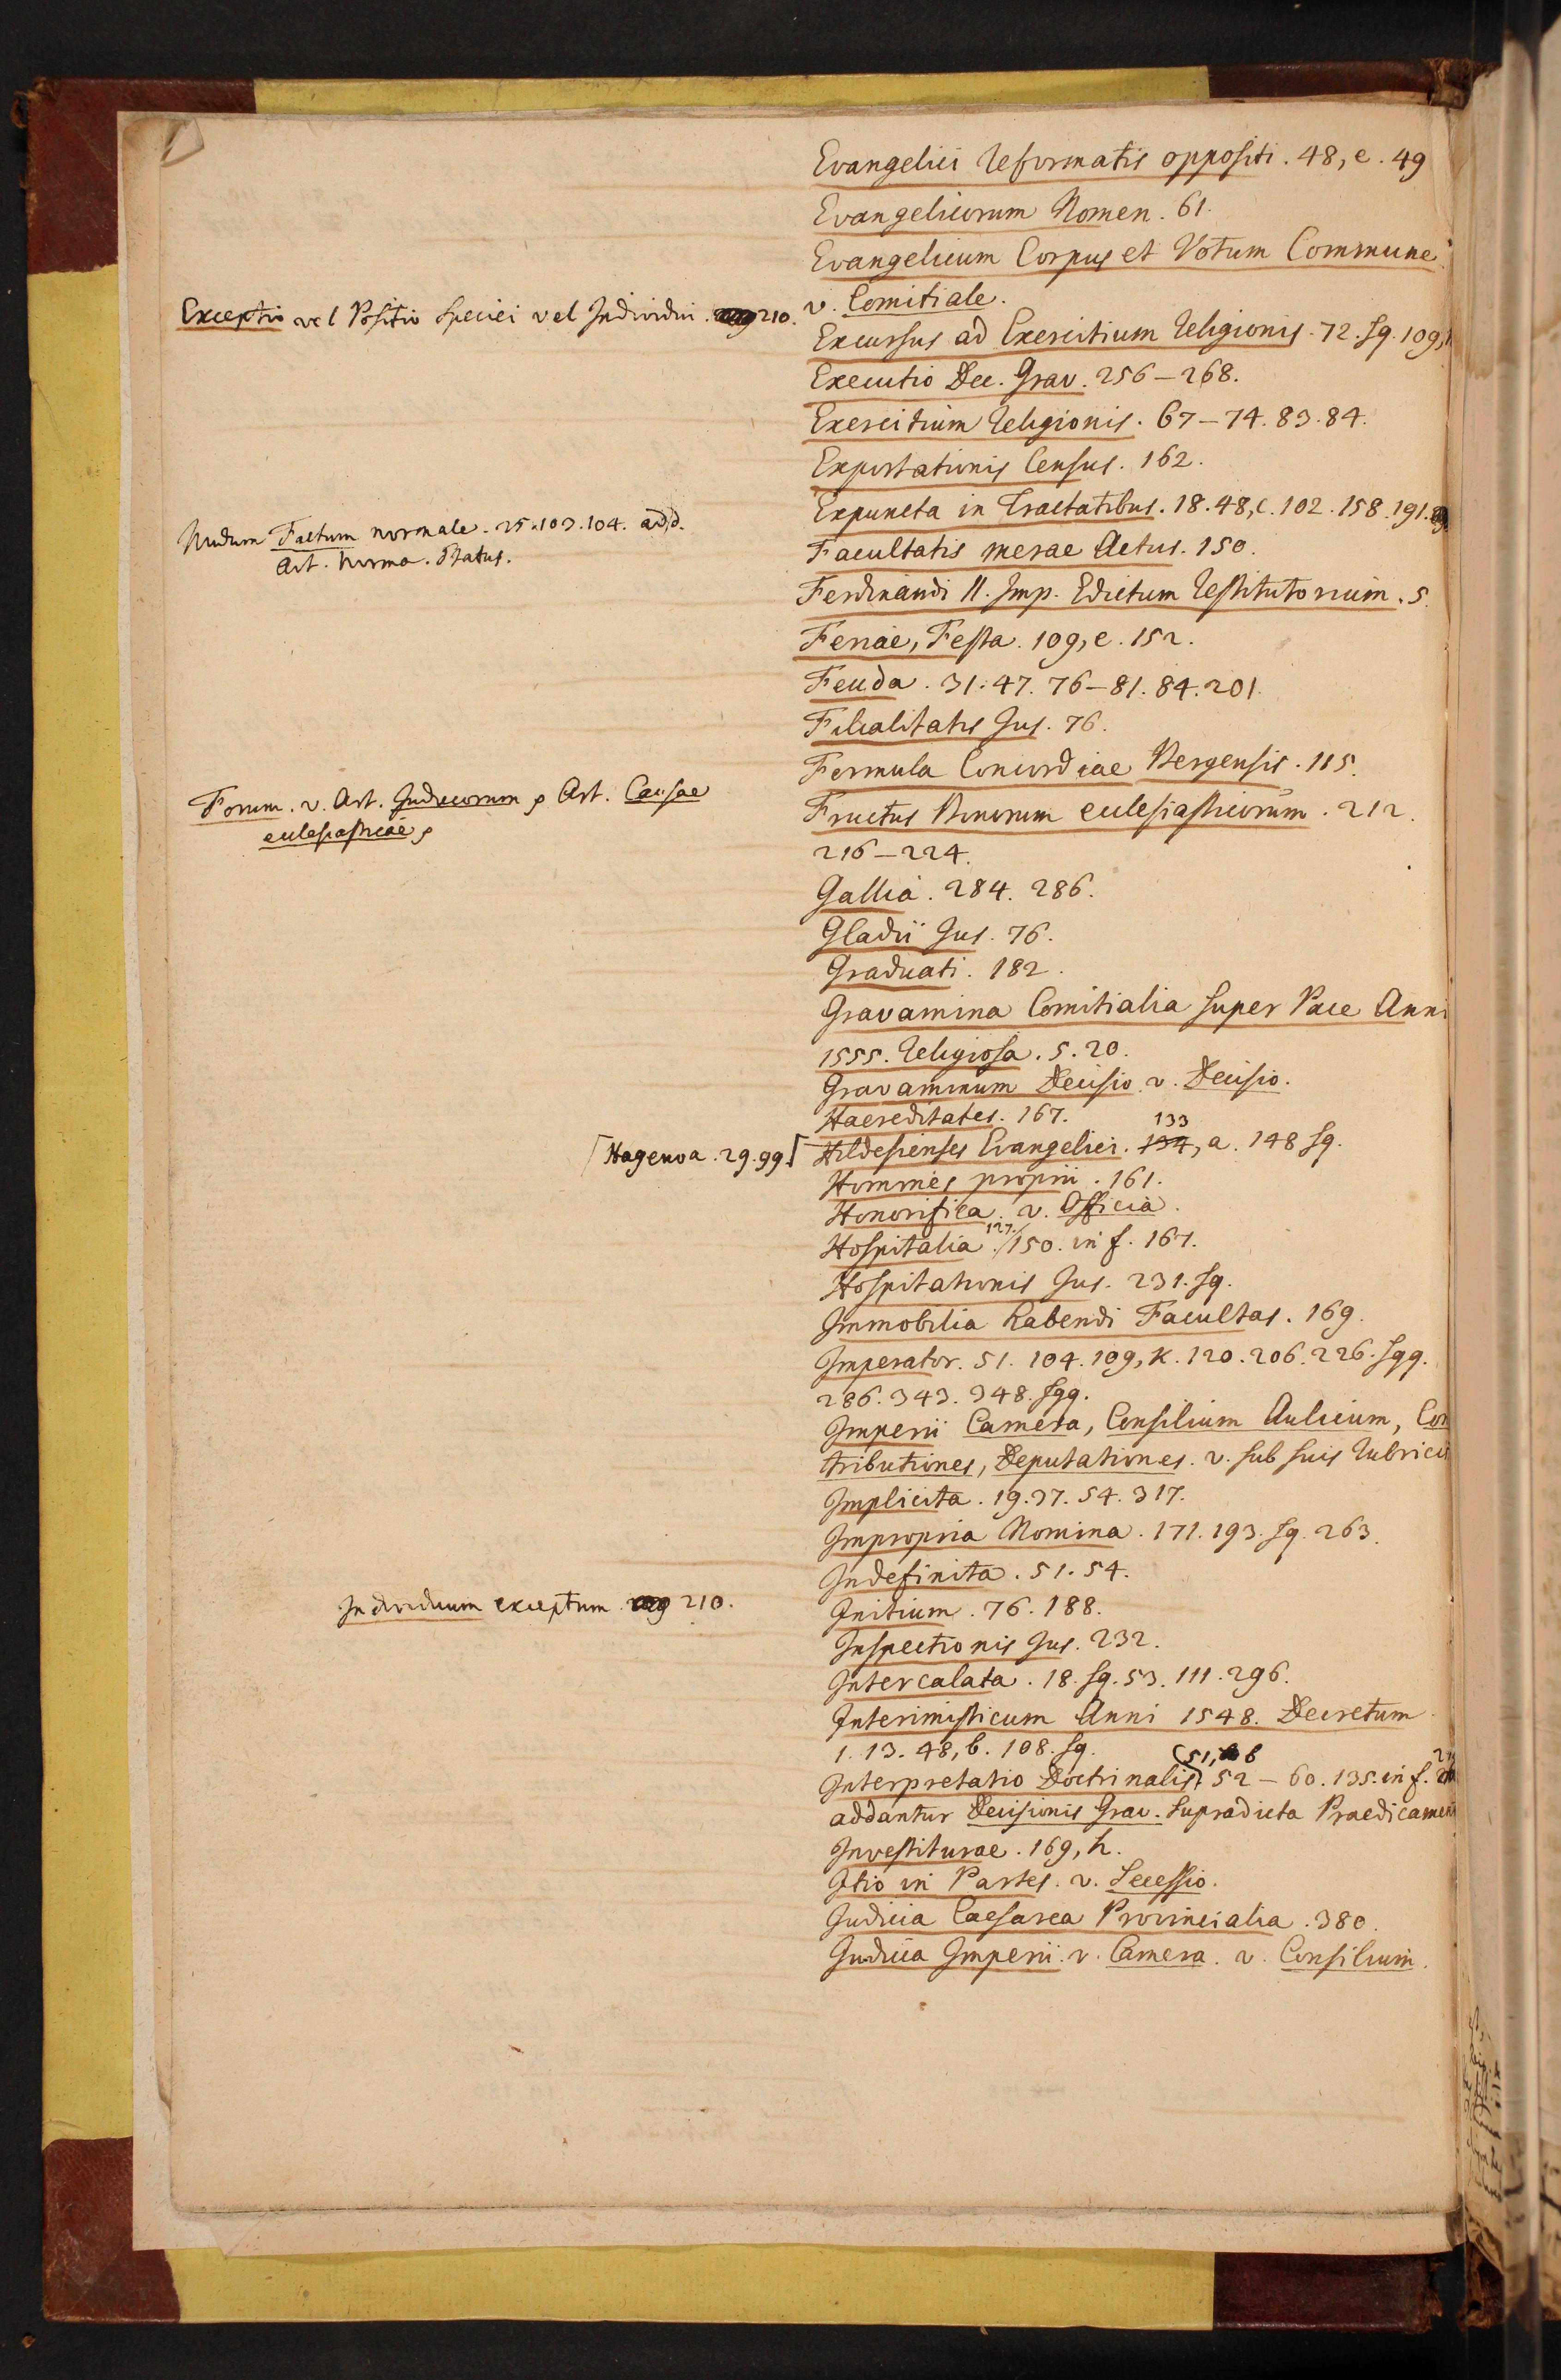 Evangelici Reformatis oppositi. 48, e. 49
Evangelicorum Nomen. 61.
Evangelicum Corpus et Votum Commune.
v. Comitiale.
Exceptio vel Positio speciei vel Individui. 210.
Excursus ad Exercitium Religionis. 72. sq. 109,
Executio Dec. Grav. 256-268.
Exercitium Religionis. 67-74. 83. 84.
Exportationis Census. 162.
Expuncta in Tractatibus. 18. 48, c. 102. 158. 191.
Nudum Factum normale. 25. 103. 104. add.
Art. Norma. Status.
Facultatis merae Actus. 150.
Ferdinandi II. Imp. Edictum Restitutorium. 5.
Feriae, Festa. 109, e. 152.
Feuda. 31. 47. 76-81. 84. 201.
Filialitatis Jus. 76.
Formula Concordiae Bergensis. 115.
Forum. v. Art. Judiciorum, Art. Causae
ecclesiasticae,
Fructus Bonorum ecclesiasticorum. 212.
216-224.
Gallia. 284. 286.
Gladii Jus. 76.
Graduati. 182.
Gravamina Comitialia super Pace Anni
1555. Religiosa. 5. 20.
Gravaminum Decisio v. Decisio.
Haereditates. 167.
[Hagenoa. 29. 99.]
Hildesienses Evangelici. 133 134, a. 148 sq.
Homines proprii. 161.
Honorifica. v. Officia.
Hospitalia. 127. 150. in f. 167.
Hospitationis Jus. 231. sq.
Immobilia habendi Facultas. 169.
Imperator. 51. 104. 109, k. 120. 206. 226. sqq.
286. 343. 348. sqq.
Imperii Camera, Consilium Aulicum, Con
tributiones, Deputationes. v. sub suis Rubricis
Implicita. 19. 37. 54. 317.
Impropria Nomina. 171. 193. sq. 263.
Indefinita. 51. 54.
Individuum exceptum. 210.
Initium. 76. 188.
Inspectionis Jus. 232.
Intercalata. 18. sq. 53. 111. 296.
Interimisticum Anni 1548. Decretum.
1. 13. 48, b. 108. sq.
Interpretatio Doctrinalis. (51, b 52-60. 135. in f.
addantur Decisionis Grav. supradicta Praedicament
Investiturae. 169, h.
Itio in Partes. v. Secessio.
Judicia Caesarea Provincialia. 380.
Judicia Imperii. v. Camera. v. Consilium.